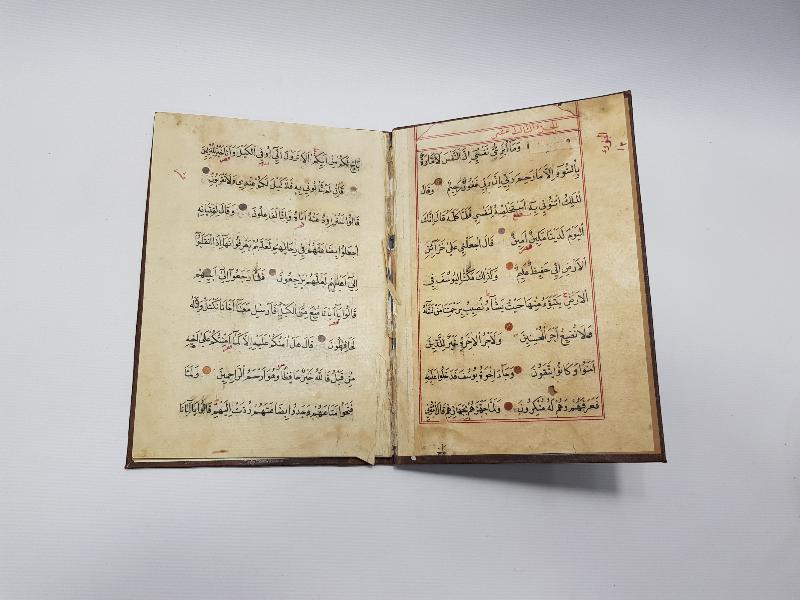 الجزء الثالث عشر
وَمَا أُبَرِّئُ نَفْسِي إِنَّ النَّفْسَ لَأَمَّارَةٌ
بِالسُّوءِ إِلَّا مَا رَحِمَ رَبِّي إِنَّ رَبِّي غَفُورٌ رَحِيمٌ وَقَالَ
الْمَلِكُ ائْتُونِي بِهِ أَسْتَخْلِصْهُ لِنَفْسِي فَلَمَّا كَلَّمَهُ قَالَ إِنَّكَ
الْيَوْمَ لَدَيْنَا مَكِينٌ أَمِينٌ قَالَ اجْعَلْنِي عَلَى خَزَائِنِ
الْأَرْضِ إِنِّي حَفِيظٌ عَلِيمٌ وَكَذَلِكَ مَكَّنَّا لِيُوسُفَ فِي
الْأَرْضِ يَتَبَوَّأُ مِنْهَا حَيْثُ يَشَاءُ نُصِيبُ بِرَحْمَتِنَا مَنْ نَشَاءُ
وَلَا نُضِيعُ أَجْرَ الْمُحْسِنِينَ وَلَأَجْرُ الْآخِرَةِ خَيْرٌ لِلَّذِينَ
آمَنُوا وَكَانُوا يَتَّقُونَ وَجَاءَ إِخْوَةُ يُوسُفَ فَدَخَلُوا عَلَيْهِ
فَعَرَفَهُمْ وَهُمْ لَهُ مُنْكِرُونَ وَلَمَّا جَهَّزَهُمْ بِجَهَازِهِمْ قَالَ ائْتُونِي
بِأَخٍ لَكُمْ مِنْ أَبِيكُمْ أَلَا تَرَوْنَ أَنِّي أُوفِي الْكَيْلَ وَأَنَا خَيْرُ الْمُنْزِلِينَ
فَإِنْ لَمْ تَأْتُونِي بِهِ فَلَا كَيْلَ لَكُمْ عِنْدِي وَلَا تَقْرَبُونِ
قَالُوا سَنُرَاوِدُ عَنْهُ أَبَاهُ وَإِنَّا لَفَاعِلُونَ وَقَالَ لِفِتْيَانِهِ
اجْعَلُوا بِضَاعَتَهُمْ فِي رِحَالِهِمْ لَعَلَّهُمْ يَعْرِفُونَهَا إِذَا انْقَلَبُوا
إِلَى أَهْلِهِمْ لَعَلَّهُمْ يَرْجِعُونَ فَلَمَّا رَجَعُوا إِلَى أَبِيهِمْ
قَالُوا يَا أَبَانَا مُنِعَ مِنَّا الْكَيْلُ فَأَرْسِلْ مَعَنَا أَخَانَا نَكْتَلْ وَإِنَّا لَهُ
لَحَافِظُونَ قَالَ هَلْ آمَنُكُمْ عَلَيْهِ إِلَّا كَمَا أَمِنْتُكُمْ عَلَى أَخِيهِ
مِنْ قَبْلُ فَاللَّهُ خَيْرٌ حَافِظًا وَهُوَ أَرْحَمُ الرَّاحِمِينَ وَلَمَّا
فَتَحُوا مَتَاعَهُمْ وَجَدُوا بِضَاعَتَهُمْ رُدَّتْ إِلَيْهِمْ قَالُوا يَا أَبَانَا